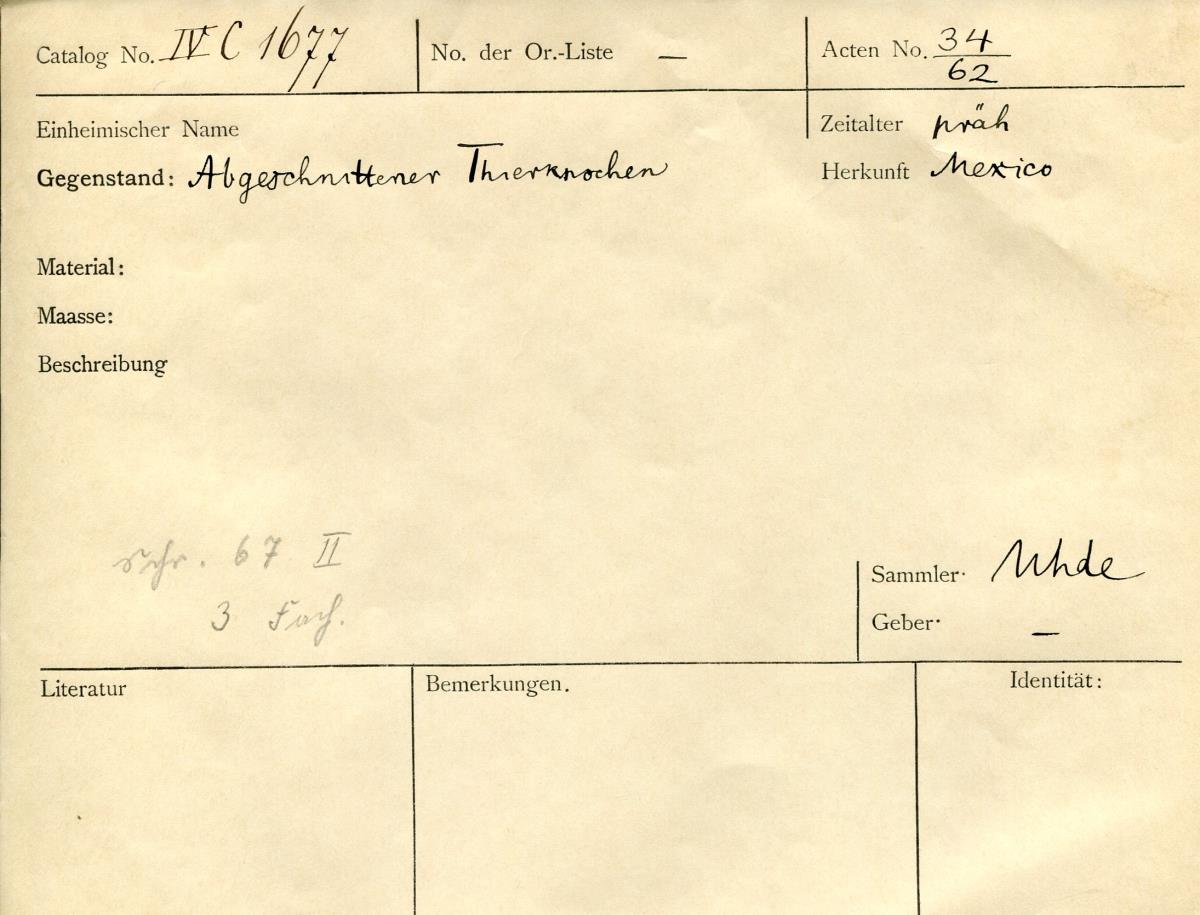 Catalog No. IV C 1677
No. der Or.-Liste —
Acten No. 34/62
Einheimischer Name
Zeitalter präh
Gegenstand: Abgeschnittener Thierknochen
Herkunft Mexico
Material:
Maasse:
Beschreibung
Schr. 67 II
3 Fach.
Sammler. Uhde
Geber. —
Literatur
Bemerkungen.
Identität: